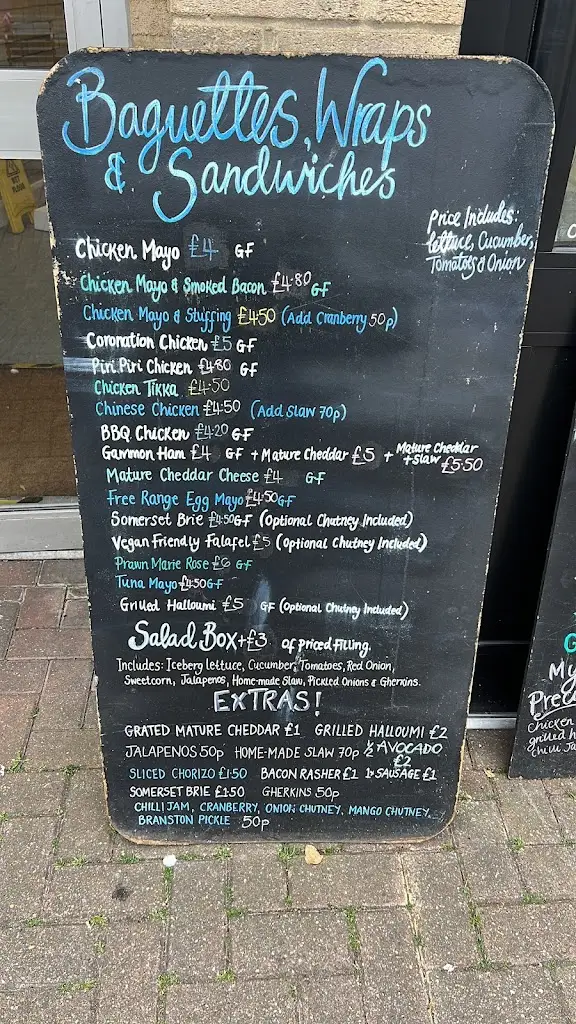 Baguettes, Wraps
& Sandwiches
Price Includes:
lettuce, Cucumber,
Tomatoes & Onion
Chicken Mayo £4 GF
Chicken Mayo & Smoked Bacon £4.80 GF
Chicken Mayo & Stuffing £4.50 (Add Cranberry 50p)
Coronation Chicken £5 GF
Piri Piri Chicken £4.80 GF
Chicken Tikka £4.50
Chinese Chicken £4.50 (Add Slaw 70p)
BBQ Chicken £4.20 GF
Gammon Ham £4 GF + Mature Cheddar £5 + Mature Cheddar + Slaw £5.50
Mature Cheddar Cheese £4 GF
Free Range Egg Mayo £4.50 GF
Somerset Brie £4.50 GF (Optional Chutney Included)
Vegan Friendly Falafel £5 (Optional Chutney Included)
Prawn Marie Rose £6 GF
Tuna Mayo £4.50 GF
Grilled Halloumi £5 GF (Optional Chutney Included)
Salad Box + £3 of Priced Filling.
Includes: Iceberg lettuce, Cucumber, Tomatoes, Red Onion,
Sweetcorn, Jalapenos, Home-made Slaw, Pickled Onions & Gherkins.
EXTRAS!
GRATED MATURE CHEDDAR £1 GRILLED HALLOUMI £2
JALAPENOS 50p HOME-MADE SLAW 70p ½ AVOCADO £2
SLICED CHORIZO £1.50 BACON RASHER £1 1x SAUSAGE £1
SOMERSET BRIE £1.50 GHERKINS 50p
CHILLI JAM, CRANBERRY, ONION CHUTNEY, MANGO CHUTNEY,
BRANSTON PICKLE 50p